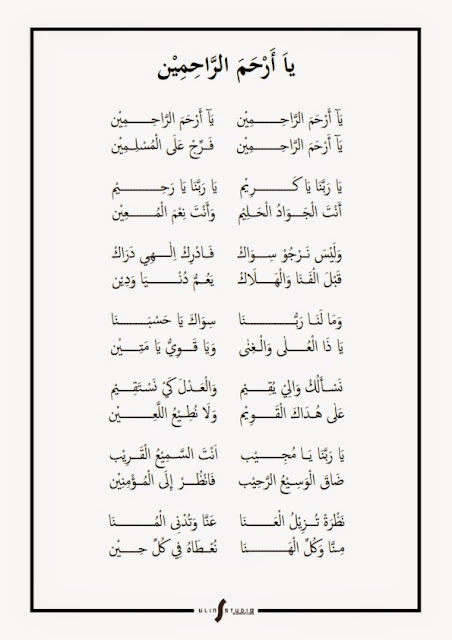 ياَ أَرْحَمَ الرَّاحِمِيْن
يَآ أَرْحَمَ الرَّاحِـــمِيْن يَآ أَرْحَمَ الرَّاحِـــمِيْن
يَآ أَرْحَمَ الرَّاحِـــمِيْن فَـرِّجْ عَلَى الْمُسْلِـمِيْن
يَا رَبَّنَا يَا كَـــرِيْم يَا رَبَّنَا يَا رَحِـــيْم
أَنْتَ الْجَـوَادُ الْحَـلِيْم وَأَنْتَ نِعْمَ الْمُــعِيْن
وَلَيْسَ نَـرْجُوْ سِـوَاكَ فَـادْرِكْ اِلٰـهِي دَرَاكَ
قَبْلَ الْفَـنَا وَالْهَـلَاكَ يَعُمُّ دُنْــيَا وَدِيْن
وَمَا لَنَـا رَبُّـــنَا سِوَاكَ يَا حَسْبَــنَا
يَا ذَا الْعُـلٰى وَالْغِنٰى وَيَا قَـوِيُّ يَا مَتِــيْن
نَسْـأَلُكْ وَالِيْ يُقِــيْم وَالْعَـدْلَ كَيْ نَسْـتَقِـيْم
عَلٰى هُدَاكَ الْقَـوِيْم وَلَا نُطِـيْعُ اللَّعِــيْن
يَا رَبَّنَا يَـا مُجِـــيْب اَنْتَ السَّمِيْعُ الْقَـرِيْب
ضَاقَ الْوَسِـيْعُ الرَّحِيْب فَانْظُـرْ إِلَى الْمُؤْمِنِيْن
نَظْرَةْ تُـزِيْلُ الْعَــنَا عَنَّا وَتُدْنِى الْمُــنَا
مِنَّا وَكُلِّ الْهَــنَا نُعْـطَاهُ فِي كُلِّ حِــيْن
ULIN STUDIO